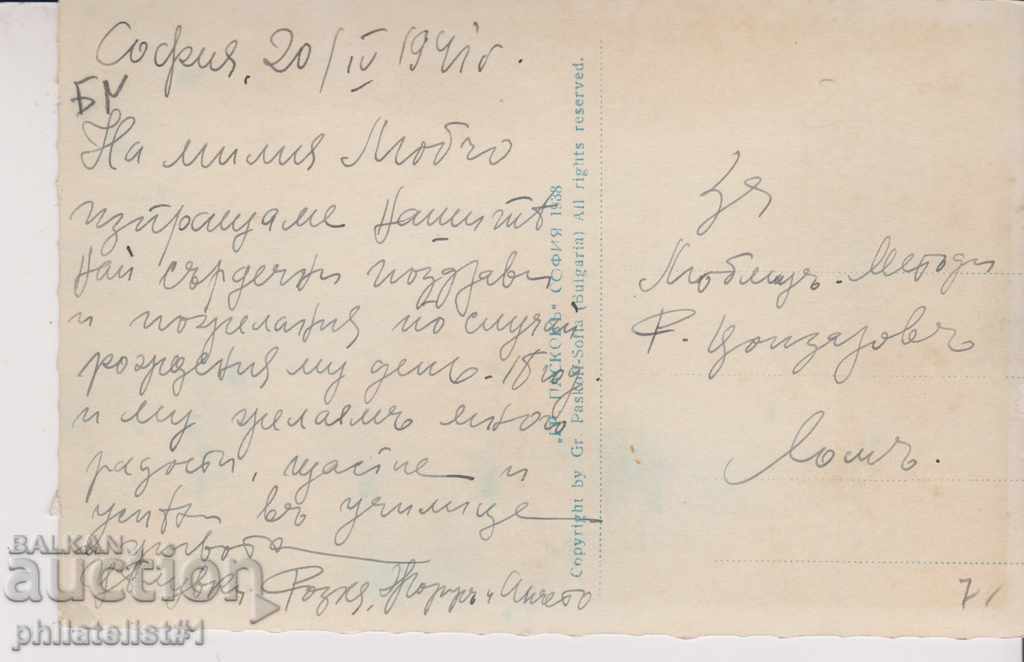 София, 20/IV 1941 г.
БМ
На милия Любчо
изпращаме нашитѣ
най сърдечни поздрави
и пожелания по случай
рождения му день - 18 год.
и му желаемъ много
радости, щастие и
успѣхи въ училище
и живота
Розка, Жоржъ и Анчето
"ГР. ПАСКОВЪ" СОФИЯ 1938
Copyright by Gr Paskoff-Sofia (Bulgaria) All rights reserved.
За
Любчо Методи
Р.
Ломъ.
7/
BALKAN
auction
philatelist#1